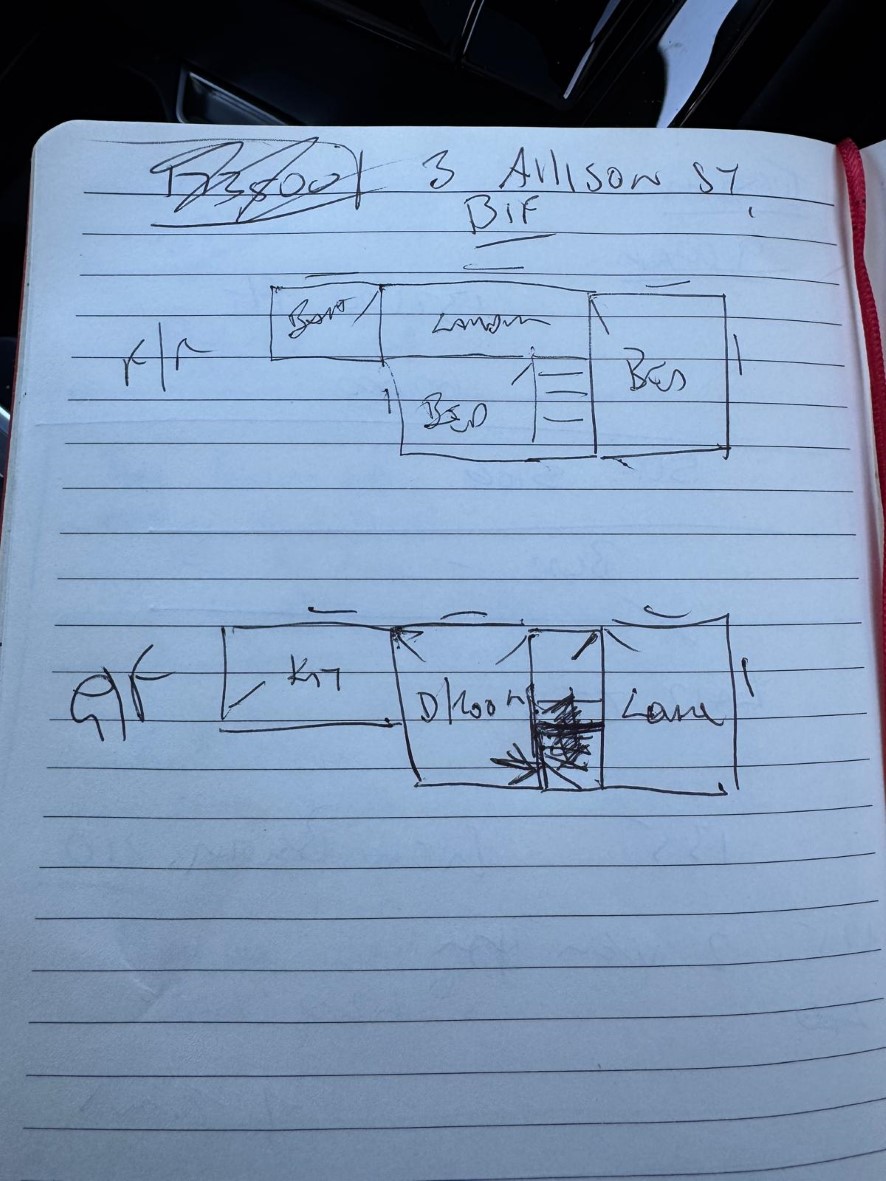 3 Allison St,
BIF
F/F
Bath Landing
Bed Bed
G/F
Kit D/Room